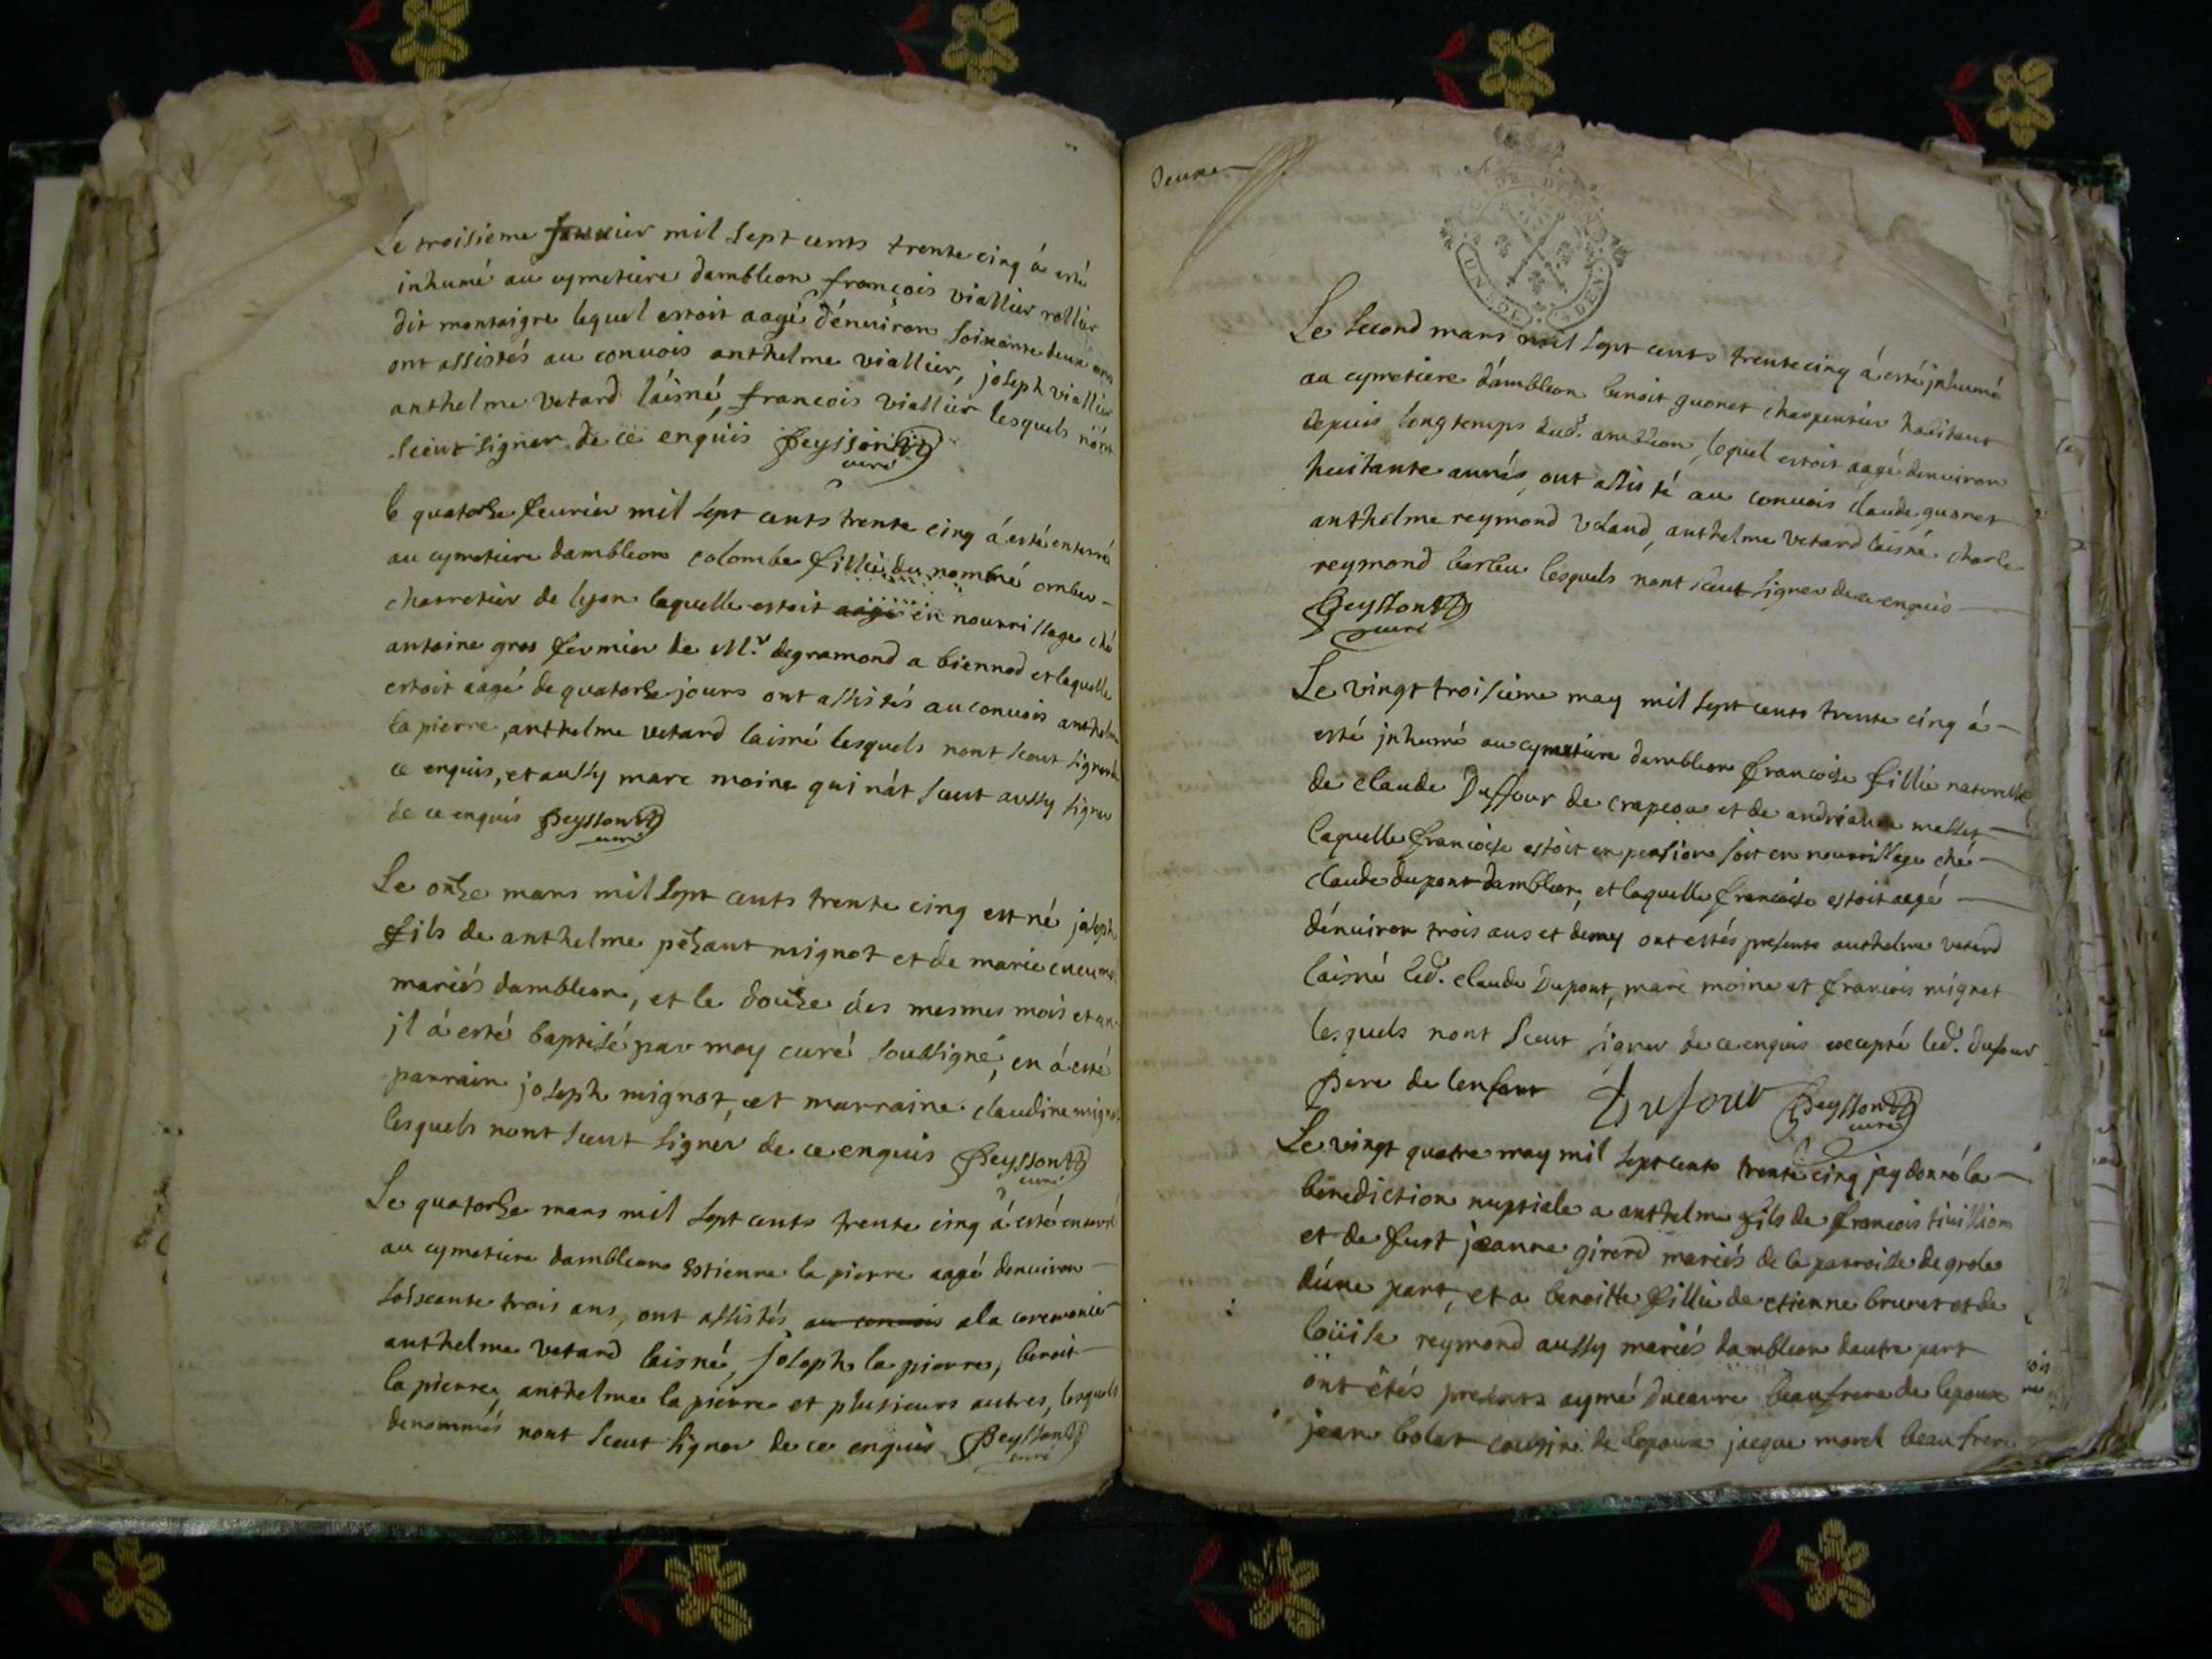 Le troisieme janvier mil sept cents trente cinq à esté
inhumé au cymetiere dambleon françois viallier rollier
dit montaigre lequel estoit aagé dénuiron soixante deux ans
ont assistés au conuois anthelme viallier, joseph viallier
anthelme vetard láisné, francois viallier lesquels nònt
sceut signer de ce enquis Peysson
curé
le quatorse feurier mil sept cents trente cinq á esté enterré
au cymetiere dambleon colombe fillie du nommé omber
charretier de lyon laquelle estoit en nourrissage ché
antoine gros fermier de Mr. degramond a biennod et laquelle
estoit aagé de quatorse jours ont assistés au conuois anthelme
la pierre, anthelme vetard laisné lesquels nont sceut signer de
ce enquis, et aussy marc moine qui nát sceut aussy signer
de ce enquis Peysson
curé
Le onse mars mil sept cents trente cinq est né joseph
fils de anthelme pésant mignot et de marie
mariés dambleon, et le douse des mesmes mois et an
jl á esté baptisé par moy curé soussigné, en á esté
parrain joseph mignot, et marraine claudine mignot
lesquels nont sceut signér de ce enquis Peysson
curé
Le quatorse mars mil sept cents trente cinq á esté enterré
au cymetiere dambleon estienne la pierre aagé denuiron
soiscante trois ans, ont assistés au conuois a la ceremonie
anthelme vetard laisné, joseph la pierre, benoit
la pierre, anthelme la pierre et plusieurs autres, lesquels
denommés nont sceut signer de ce enquis Peysson
curé
Deuxe
UN SOL DEN.
Le second mars mil sept cents trente cinq á esté jnhumé
au cymetiere dámbleon benoit guonet charpentier habitant
depuis longtemps aud. ambleon, lequel estoit aagé denuiron
huitante années, ont assisté au conuois claude guonet
anthelme reymond voland, anthelme vetard laisné charle
reymond berleu lesquels nont sceut signer de ce enquis
Peysson
curé
Le vingt troisieme may mil sept cents trente cinq á
esté jnhumé au cymetiere dambleon francoise fillie naturelle
de claude Duffour de crapeou et de andrianne mallet
laquelle francoise estoit en pension soit en nourrissage ché
claude dupont dambleon, et laquelle francoise estoit aagé
dénuiron trois ans et démy ont estés presents anthelme vetard
laisné led. claude Dupont, marc moine et francois mignot
lesquels nont sceut signer de ce enquis excepté led. dufour
Pere de lenfant Dufour Peysson
curé
Le vingt quatre may mil sept cents trente cinq jay donné la
benediction nuptiale a anthelme fils de francois tiuillion
et de fust jeanne girerd mariés de la parroisse de grolee
dúne part, et a benoitte fillie de etienne brunet et de
loüise reymond aussy mariés dambleon dautre part
ónt étés presents aymé Ducarre beaufrere de lepoux
jean bolet cousin de lepoux jacque morel beaufrere